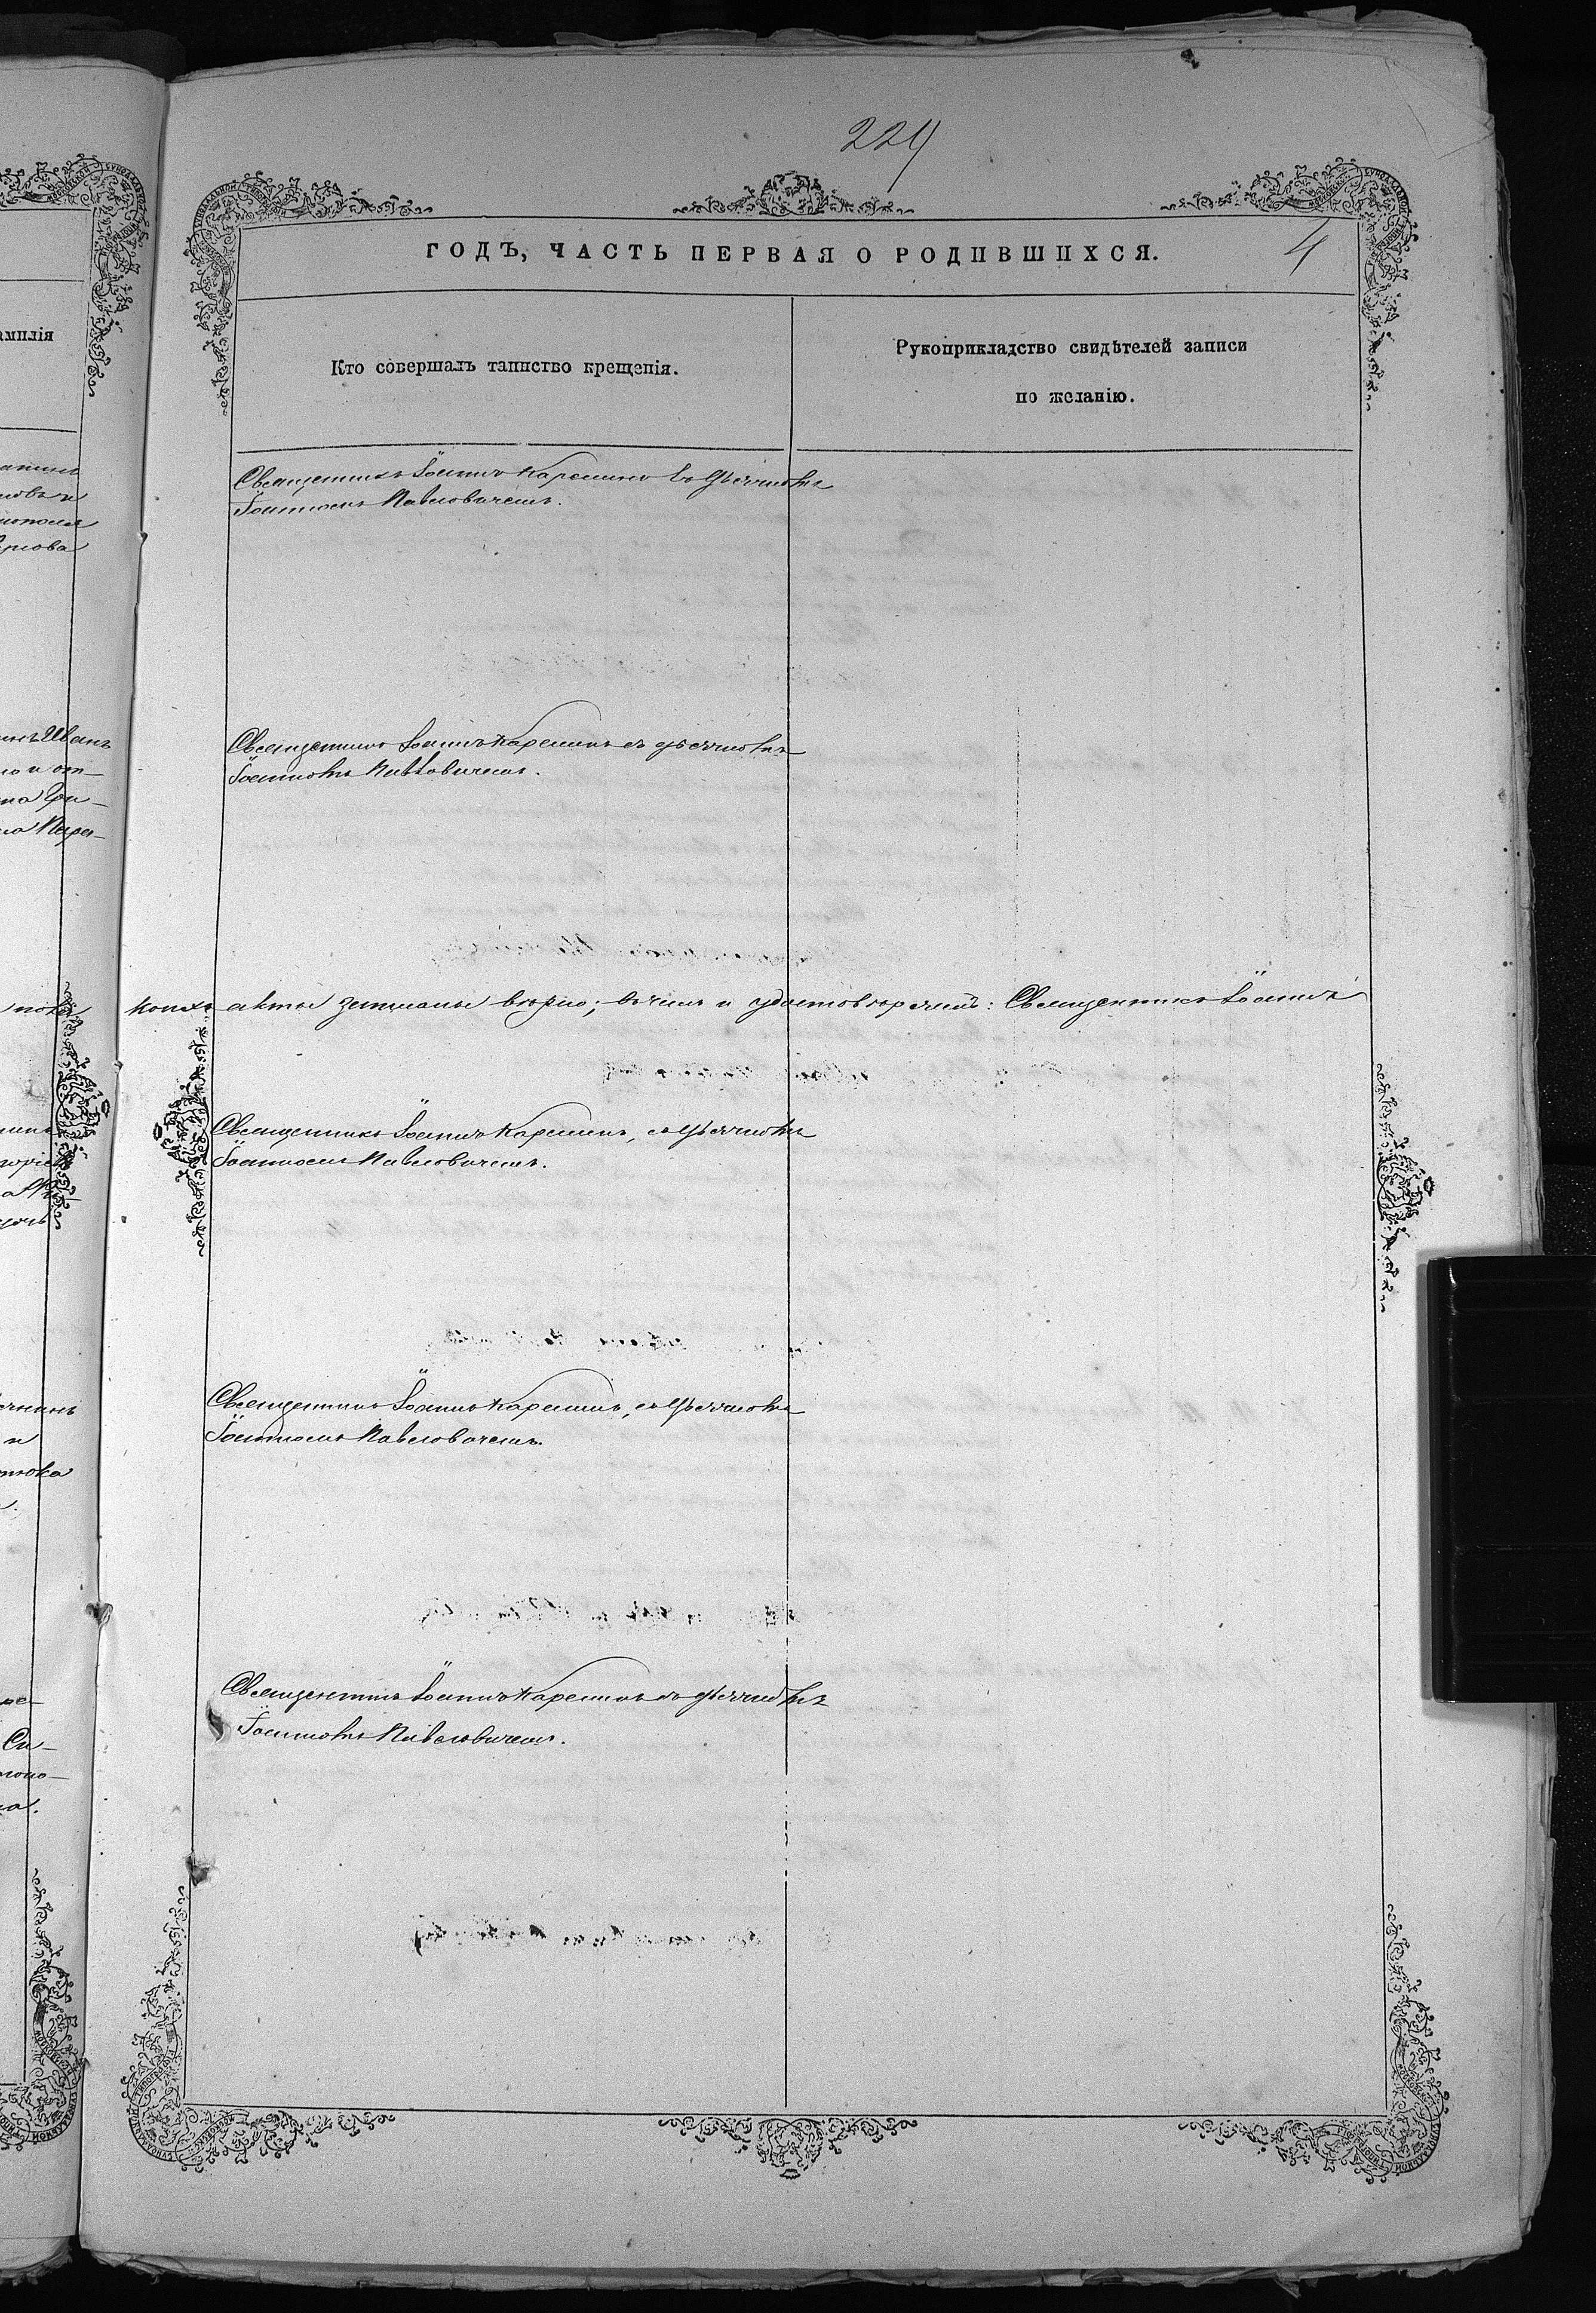 224
ГОДЪ, ЧАСТЬ ПЕРВАЯ О РОДИВШИХСЯ.
4
Кто совершалъ таинство крещенія.
Рукоприкладство свидѣтелей записи
по желанію.
Священникъ Іоаннъ Карелинъ съ дьячкомъ
Іоанномъ Павловичемъ.
Священникъ Іоаннъ Карелинъ съ дьячкомъ
Іоанномъ Павловичемъ.
акты записаны вѣрно; въ чемъ и удостовѣряемъ: Священникъ Іоаннъ
Священникъ Іоаннъ Карелинъ, съ дьячкомъ
Іоанномъ Павловичемъ.
Священникъ Іоаннъ Карелинъ, съ дьячкомъ
Іоанномъ Павловичемъ.
Священникъ Іоаннъ Карелинъ съ дьячкомъ
Іоанномъ Павловичемъ.